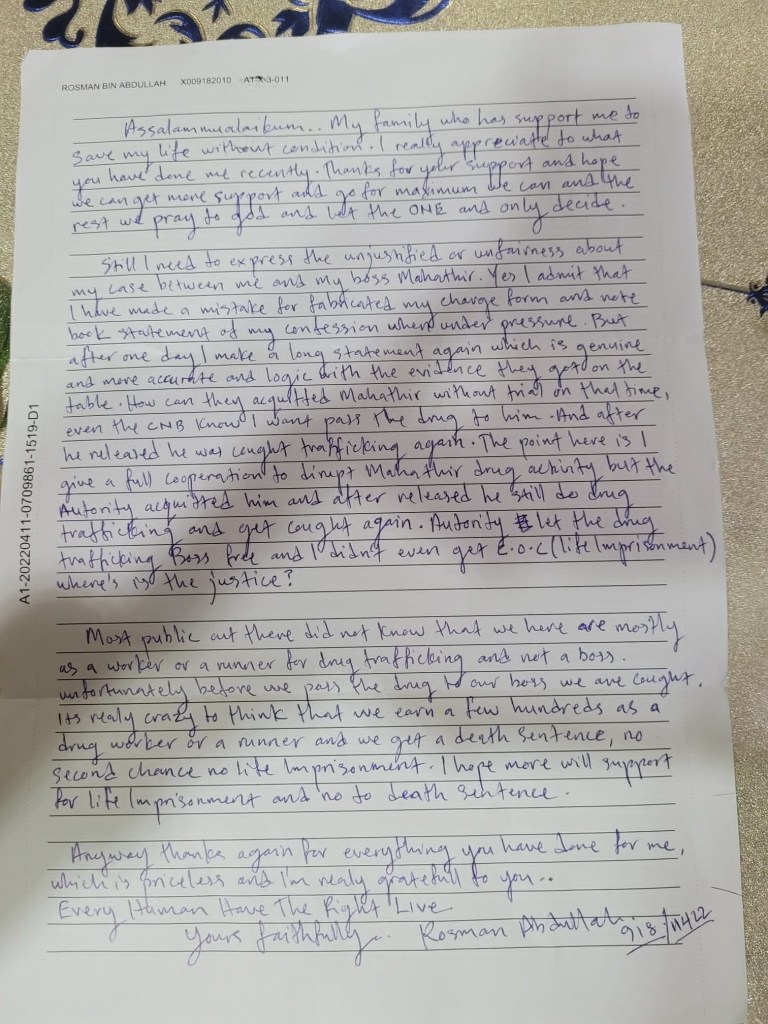 ROSMAN BIN ABDULLAH X009182010 3-011
Assalammualaikum.. My family who has support me to
save my life without condition. I realy appreciate to what
you have done me recently. Thanks for your support and hope
we can get more support and go for maximum we can and the
rest we pray to god and let the ONE and only decide.
Still I need to express the unjustified or unfairness about
my case between me and my boss Mahathir. Yes I admit that
I have made a mistake for fabricated my charge form and note
book statement of my confession when under pressure. But
after one day I make a long statement again which is genuine
and more accurate and logic with the evidence they got on the
table. How can they acquitted Mahathir without trial on that time,
even the CNB know I want pass the drug to him. And after
he released he was caught trafficking again. The point here is I
give a full cooperation to disrupt Mahathir drug activity but the
Autority acquitted him and after released he still do drug
trafficking and get caught again. Autority let the drug
trafficking Boss free and I didn't even get C.O.C (life Imprisonment)
where's is the justice?
Most public out there did not know that we here are mostly
as a worker or a runner for drug trafficking and not a boss.
unfortunately before we pass the drug to our boss we are caught.
Its realy crazy to think that we earn a few hundreds as a
drug worker or a runner and we get a death sentence, no
second chance no life Imprisonment. I hope more will support
for life Imprisonment and no to death sentence.
Anyway thanks again for everything you have done for me,
which is priceless and I'm realy gratefull to you..
Every Human Have The Right Live
Yours faithfully.. Rosman Abdullah.
918/11422
A1-20220411-0709861-1519-D1